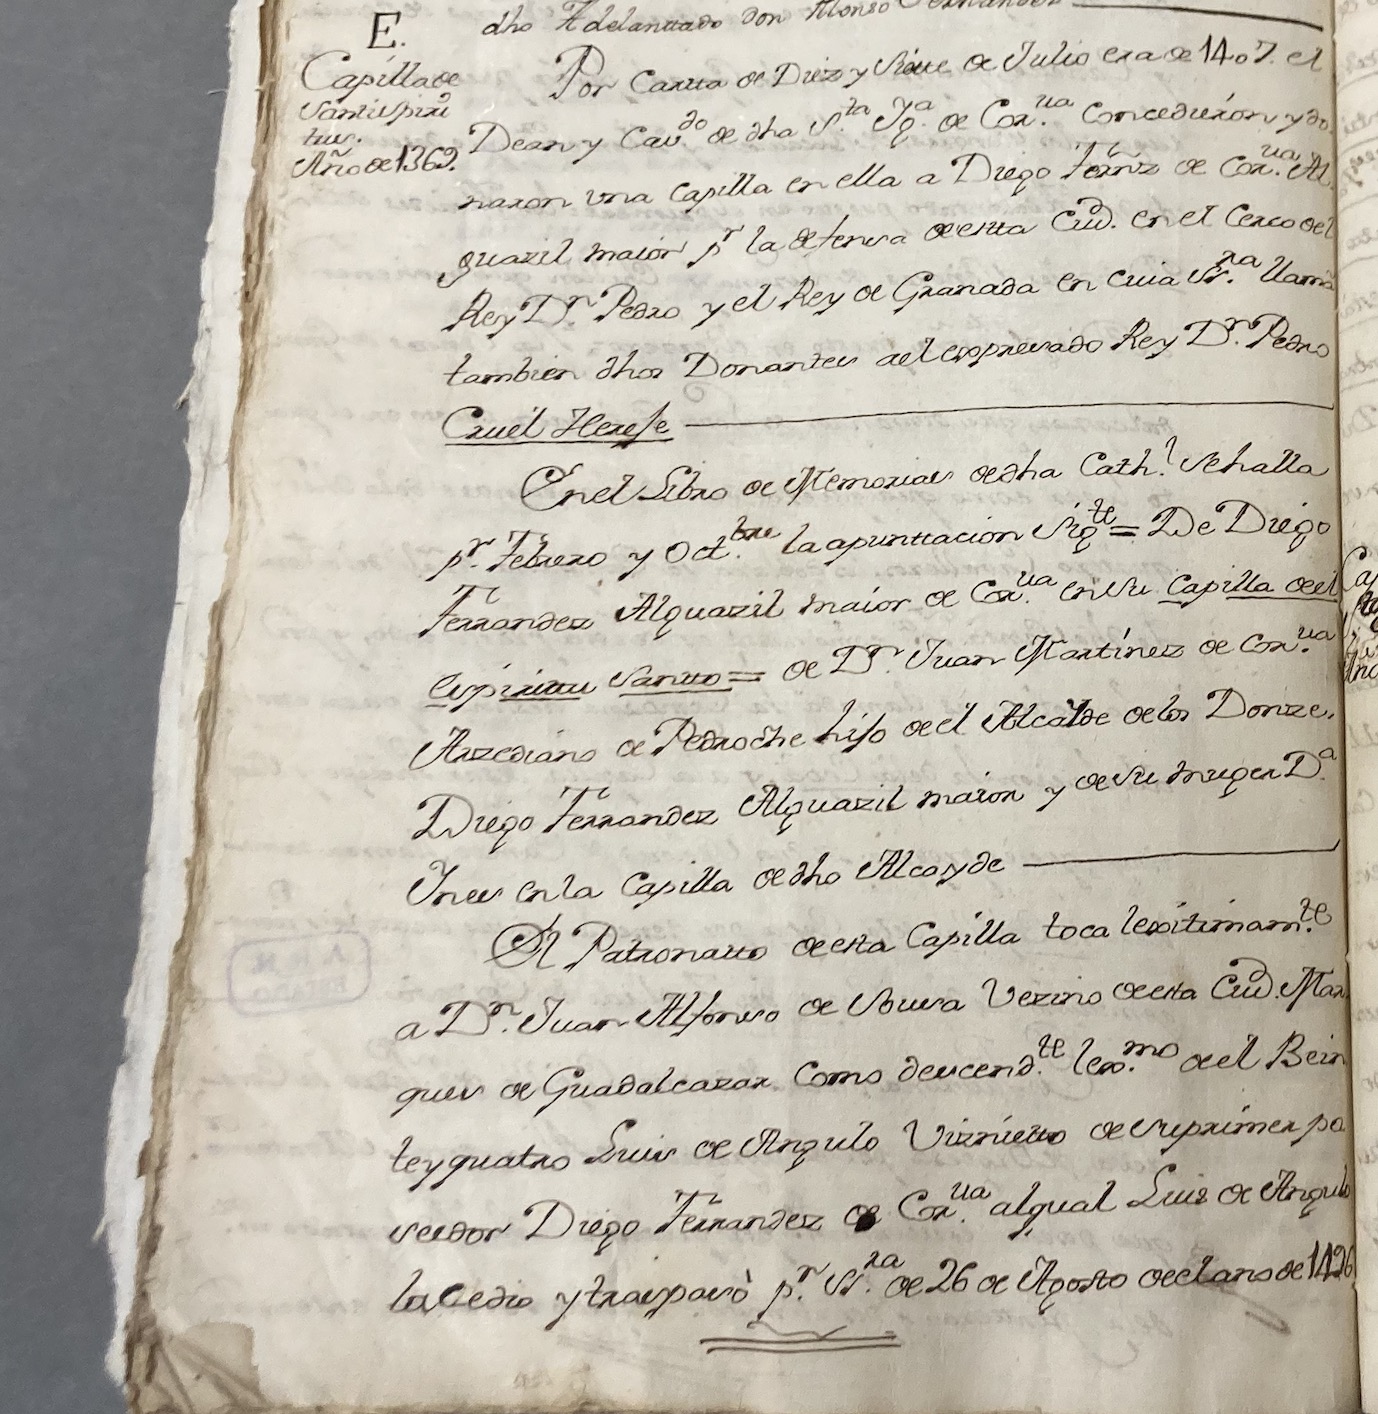 dho Adelanttado don Alonso Fernandez
E.
Capilla de
Santispiri
tus.
Año de 1369.
Por Cartta de Diez y Siette de Julio era de 1407. el
Dean y Cav.do de dha S.ta Yg.a de Cor.ua Concedieron y do
naron una Capilla en ella a Diego Fernz de Cor.ua Al
guazil maior p.r la defensa de esta Ciud. en el Cerco del
Rey D.n Pedro y el Rey de Granada en cuia Sr.ra llama
tambien dhos Donantes a el expresado Rey D.n Pedro
Cruel Hereje
En el Libro de Memorias de dha Cath.l se halla
p.r Febrero y Oct.bre la apunttacion Sig.te = De Diego
Ferrandez Alguazil maior de Cor.ua en su Capilla de el
espirittu Santto = de D.n Juan Martinez de Cor.ua
Arzediano de Pedroche hijo de el Alcalde de los Donze.
Diego Ferrandez Alguazil maior y de su muger D.a
Ynes en la Capilla de dho Alcayde
El Patronatto de esta Capilla toca lexitimam.te
a D.n Juan Alfonso de Sousa Vezino de esta Ciud. Mar
ques de Guadalcazar Como descend.te lex.mo de el Bein
te y quatro Luis de Angulo Viznietto de su primer po
seedor Diego Ferrandez de Cor.ua al qual Luis de Angulo
la Cedio y traspasò p.r Sr.ra de 26 de Agosto de el año de 1426